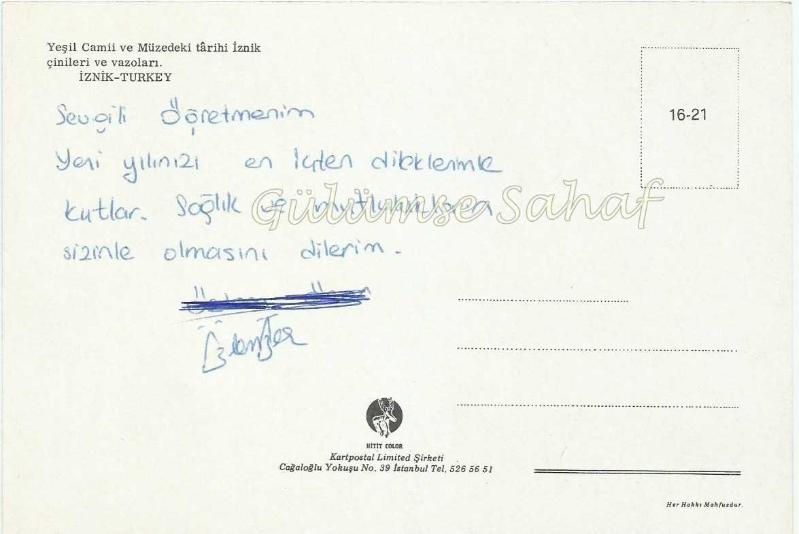 Yeşil Camii ve Müzedeki târihi İznik
çinileri ve vazoları.
İZNİK-TURKEY
16-21
Sevgili Öğretmenim
Yeni yılınızı en içten dileklerimle
kutlar. Sağlık ve mutlulukların
sizinle olmasını dilerim.
Gülümse Sahaf
HİTİT COLOR
Kartpostal Limited Şirketi
Cağaloğlu Yokuşu No. 39 İstanbul Tel. 526 56 51
Her Hakkı Mahfuzdur.